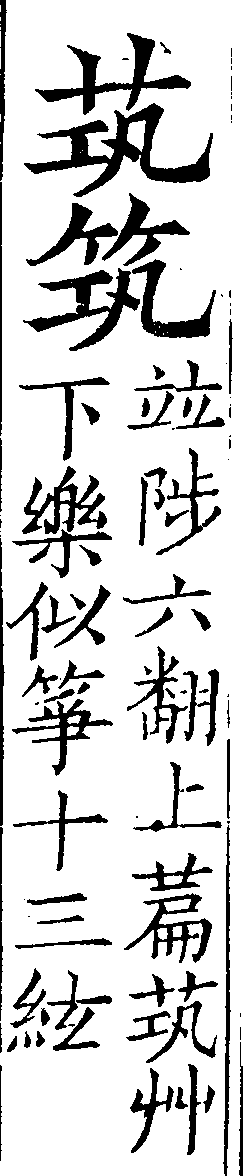 茿筑
竝陟六翻上萹茿艸
下樂似箏十三絃